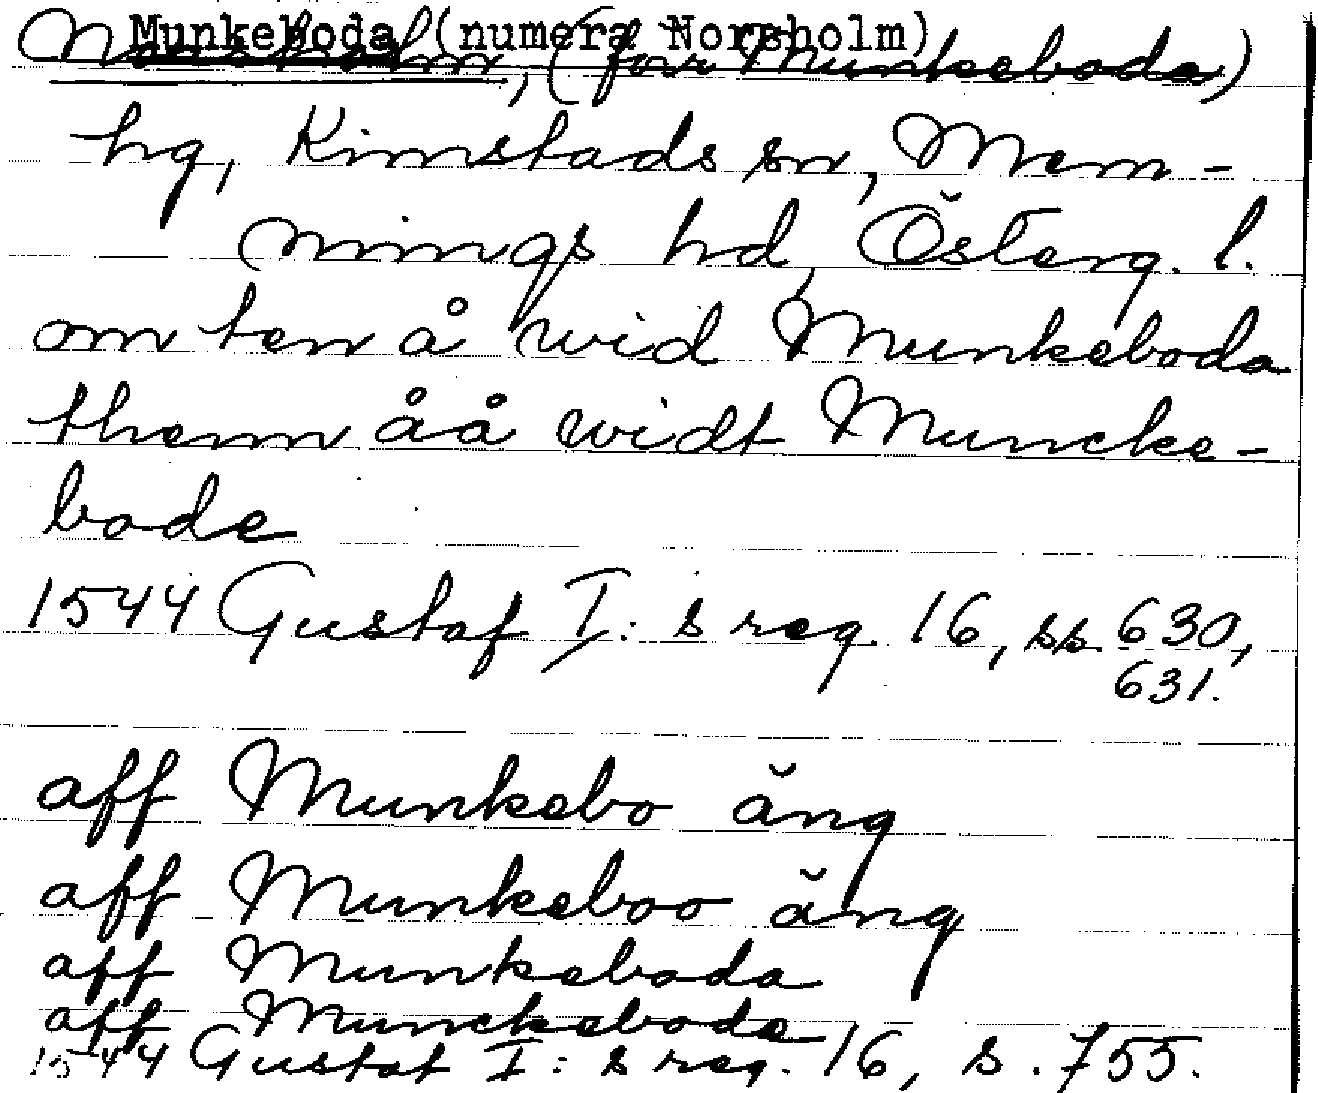 Munkeboda (numera Norsholm)
Norsholm, (förr Munkeboda)
hg, Kimstads sn, Mem-
mings hd, Österg. l.
om ten å wid Munkeboda
them åå widt Muncke-
bode
1544 Gustaf I: s reg. 16, ss. 630,
631.
aff Munkebo äng
aff Munkeboo äng
aff Munkeboda
aff Munckebode
1544 Gustaf I: s reg. 16, s. 755.